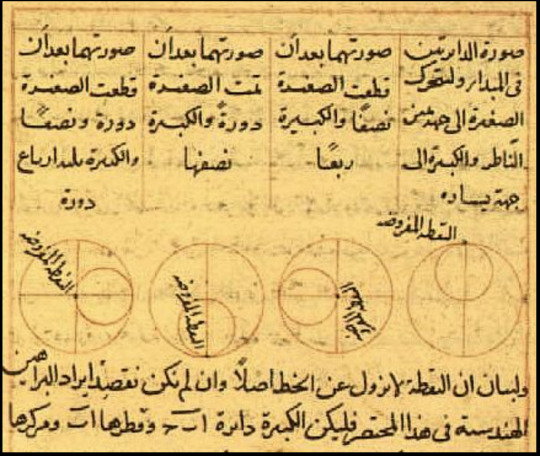 صورة الدايرتين
فى المبدا ولتتحرك
الصغيرة الى جهة يمين
الناظر والكبيرة الى
جهة يساره
صورتهما بعد أن
قطعت الصغيرة
نصفًا والكبيرة
ربعًا
صورتهما بعد أن
تمت الصغيرة
دورةً والكبيرة
نصفها
صورتهما بعد أن
قطعت الصغيرة
دورة ونصفًا
والكبيرة ثلثة ارباع
دورة
النقطة المفروضة
النقطة المفروضة
النقطة المفروضة
ولبيان ان النقطة لا تزول عن الخط اصلًا وان لم نكن نقصد ايراد البراهين
الهندسية فى هذا المختصر فليكن الكبيرة دايرة اب ج وقطرها اب ومركزها